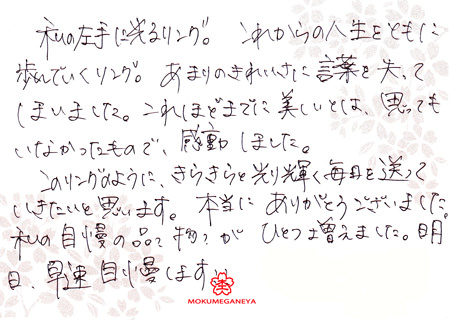 私の左手に光るリング。これからの人生をともに
歩んでいくリング。あまりのきれいさに言葉を失って
しまいました。これほどまでに美しいとは、思っても
いなかったもので、感動しました。
このリングのように、きらきらと光り輝く毎日を送って
いきたいと思います。本当にありがとうございました。
私の自慢の品？物？がひとつ増えました。明
日、早速自慢します
MOKUMEGANEYA